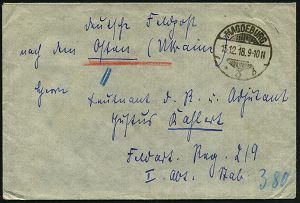 deutsche Feldpost
nach dem Osten (Ukraine
Herrn
Leutnant d. R. u. Adjutant
Justus Kahlert
Feldart. Reg. 219
I. Abt. Stab
380
MAGDEBURG
15.12.18.9-10N